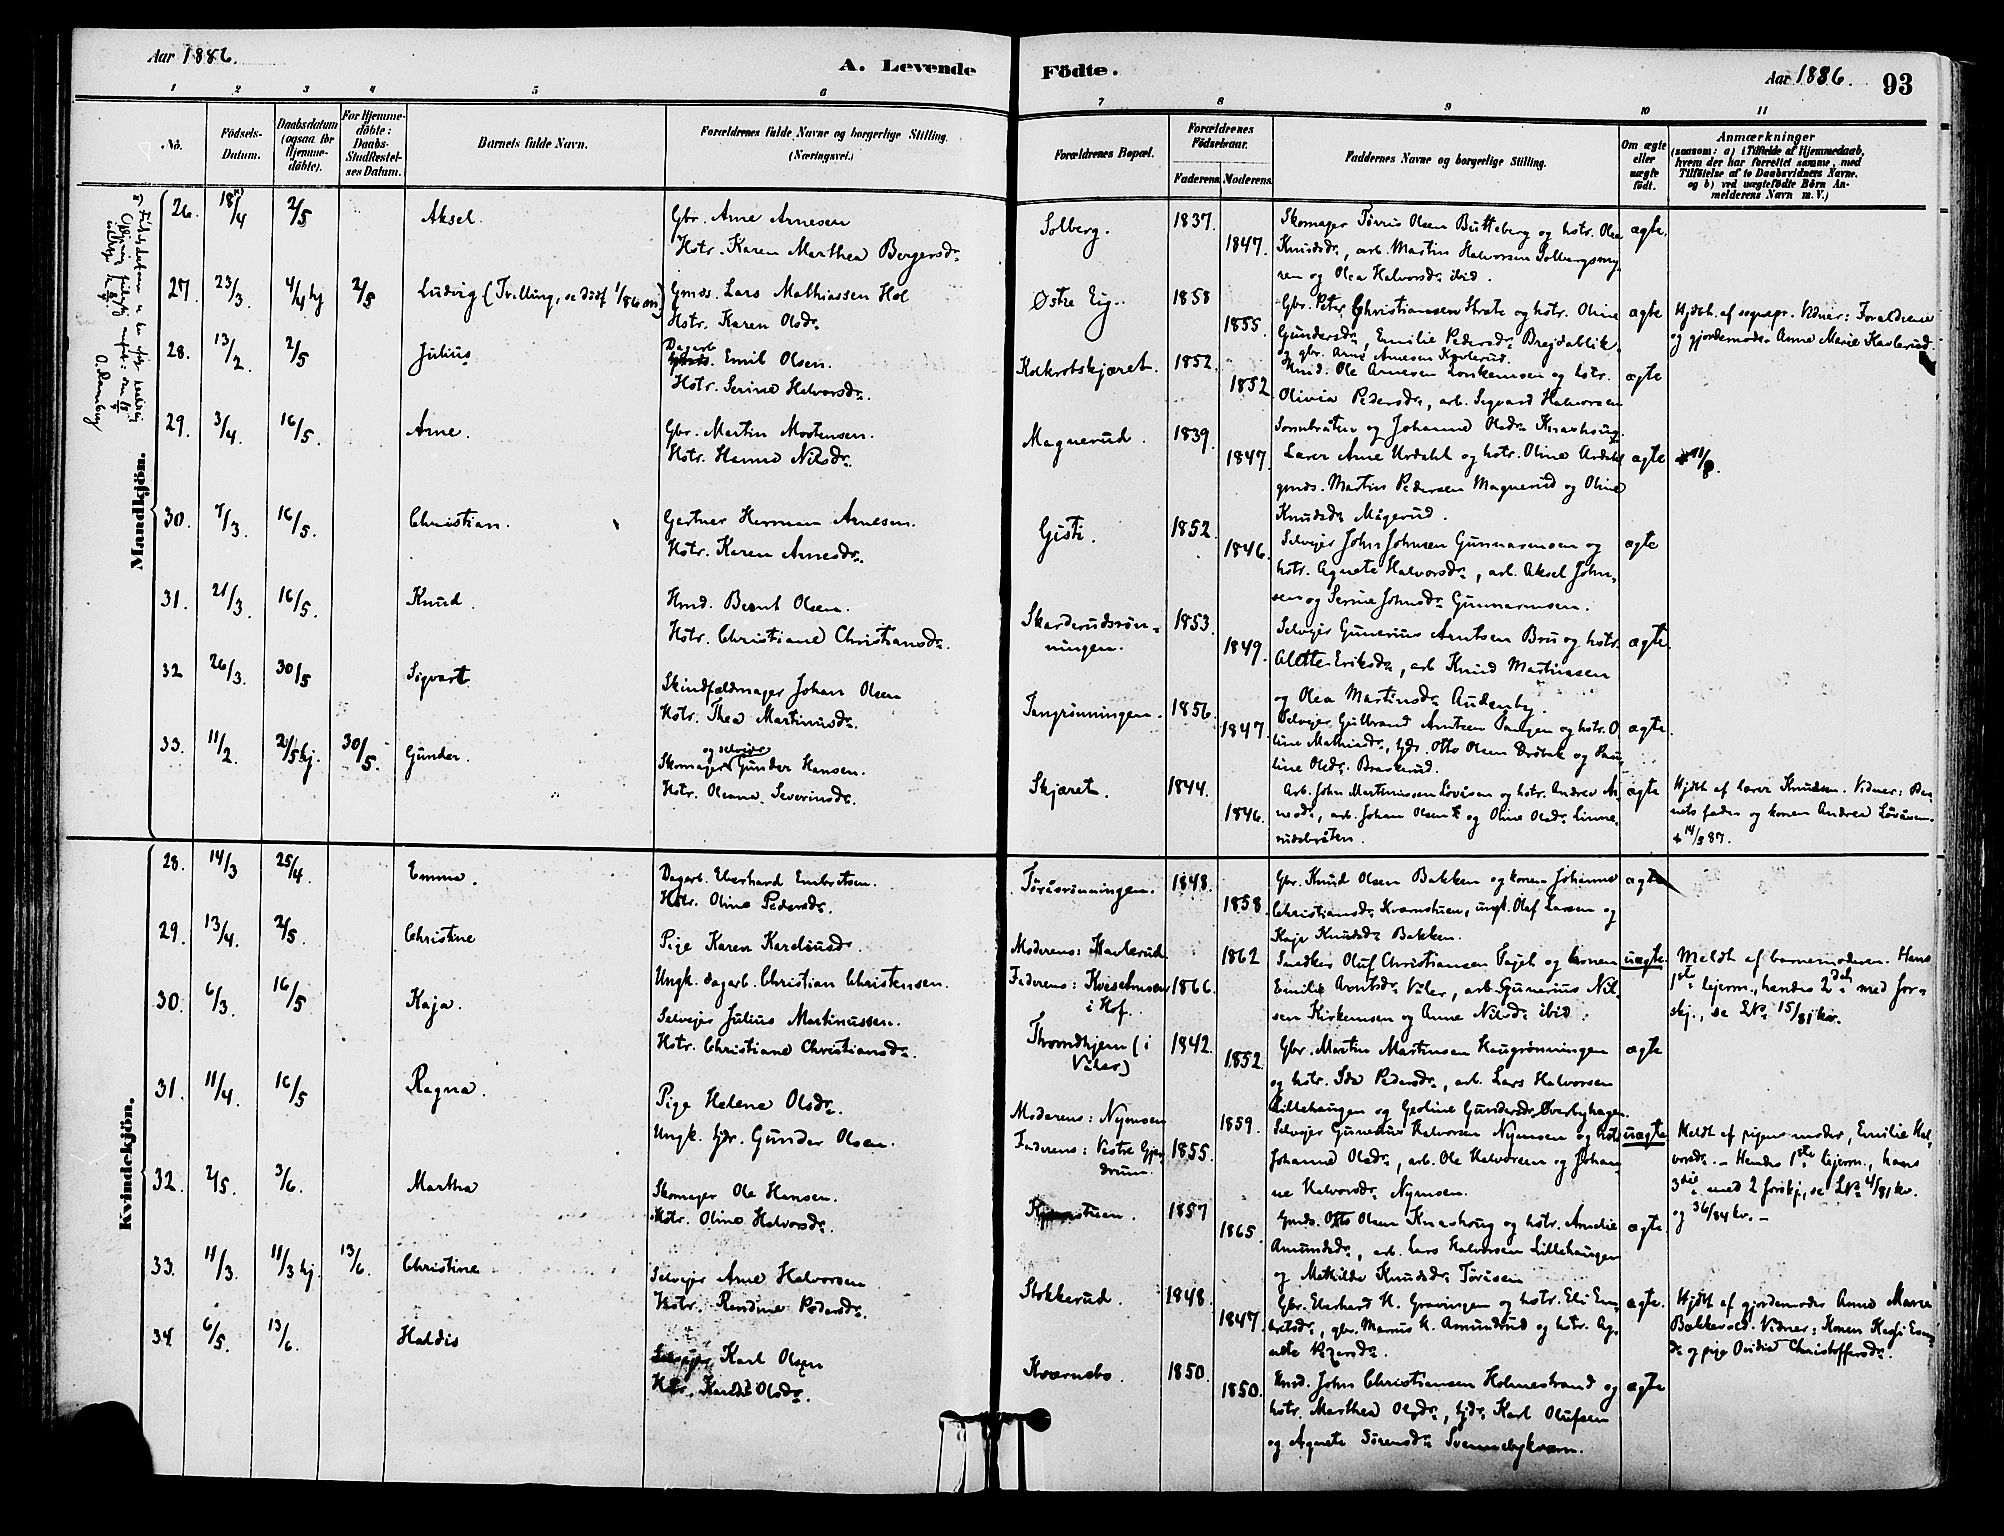 Aar 1886.
A. Levende Födte.
Aar 1886. 93
1 2 3 4 5 6 7 8 9 10 11
No.
Födsels-Datum.
Daabsdatum (ogsaa for Hjemmedøbte).
For Hjemmedøbte: Daabs-Stadfæstelses Datum.
Barnets fulde Navn.
Forældrenes fulde Navne og borgerlige Stilling.
(Næringsvei.)
Forældrenes Bopæl.
Forældrenes Födselsaar.
Faderens. Moderens.
Faddernes Navne og borgerlige Stilling.
Om ægte eller uægte født.
Anmærkninger
(saasom: a) i Tilfælde af Hjemmedaab, hvem der har forrettet samme, med Tilføielse af to Daabsvidners Navne, og b) ved uægtefødte Børn Anmelderens Navn m. V.)
Mandkjön.
26. 18/4 2/5 Aksel. Gbr. Arne Arnesen
Hstr. Karen Marthea Bergersdr.
Solberg. 1837. 1847.
Skomager Tørris Olsen Butteberg og hstr. Olea
Knudsdr., arb. Martin Halvorsen Solbergsmy-
ren og Olea Halvorsdr. ibid.
ægte.
27. 23/3. 4/4 hj 2/5 Ludvig (Tvilling, se dødf 1/86 m) Gmds. Lars Mathiassen Hol
Hstr. Karen Olsdr.
Østre Eig. 1858 1855.
Gbr. Peter Christiansen Strate og hstr. Oline
Gundersdr., Emilie Pedersdr. Brejdablik
og gbr. Arne Arnesen Kavlerud.
ægte
Hjdbt. af sognepr. Vidner: Forældrene
og gjordemoder Anne Marie Kavlerud.
28. 13/2 2/5 Julius Dagarb. Emil Olsen.
Hstr. Serine Halvorsdr.
Kolkrotskjæret. 1852. 1852
Hmd. Ole Arnesen Lonkemsen og hstr.
Olivia Pedersdr., arb. Sigvard Halvorsen
Sormbråten og Johanne Olsdr. Knashoug.
ægte
29. 3/4. 16/5. Arne. Gbr. Martin Mortensen.
Hstr. Hanna Nilsdr.
Magnerud. 1839. 1847.
Lærer Arne Urdahl og hstr. Oline Urdahl
gmds. Martin Pedersen Magnerud og Oline
Knudsdr. Mågerud.
ægte
30. 7/3. 16/5. Christian. Gertner Herman Arnesen.
Hstr. Karen Arnesdr.
Gisti. 1852. 1846.
Selvejer John Johnsen Gunnarsmoen og
hstr. Agnete Halvorsdr., arb. Aksel John-
sen og Serine Johnsdr. Gunnarmsen.
ægte
31. 21/3. 16/5. Knud. Hmd. Bernt Olsen.
Hstr. Christiane Christiansdr.
Skarderudsrøn-
ningen. 1853. 1849.
Selvejer Gunerius Arntsen Bru og hstr.
Alette Eriksdr., arb Knud Martinsen
og Olea Martinsdr. Audenby.
ægte.
32 26/3. 30/5 Sigvart. Skindfældmager Johan Olsen
Hstr. Thea Martinusdr.
Tangrønningen. 1856. 1847.
Selvejer Gulbrand Arntsen Tangen og hstr. O
line Mathiasdr., tjdr. Otto Olsen Drøbak og Pau
line Olsdr. Braskerud.
ægte.
33. 11/2. 2/5 hj. 30/5. Gunder. Skomager og selvejer Gunder Hansen.
Hstr. Oleane Severinsdr.
Skjæret. 1844. 1846.
Arb. John Martinussen Lövåsen og hstr. Andrea Ar-
nesdr., arb. Johan Olsen og Oline Olsdr. Linne-
rudsbråten.
ægte
Hjdbt. af lærer Knudsen. Vidner: Bar-
nets fader og konen Andrea Lövåsen.
14/3 87.
Kvindekjön.
28. 14/3 25/4. Emma. Dagarb. Eberhard Embretsen.
Hstr. Oline Pedersdr.
Töråsrönningen. 1848. 1858.
Gbr. Knud Olsen Bakken og konen Johanne
Christiansdr. Kværnstuen, ungk. Olaf Larsen og
Kaja Knudsdr. Bakken.
ægte
29. 13/4. 2/5. Christine Pige Karen Kareliusdr.
Ungk. dagarb. Christian Christensen.
Moderens: Kavlerud. 1862
Faderens: Kvesetmsen
i Hof. 1866.
Snedker Oluf Christiansen Fagel og konen
Emilie Arntsdr. Våler, arb. Gunerius Nil-
sen Kirkemsen og Anne Nilsdr. ibid.
uægte.
Meldt af barnemoderen. Hans
1ste lejerm., hendes 2det med for-
skj., se LNr. 15/81 kv.
30. 6/3. 16/5 Kaja. Selvejer Julius Martinussen.
Hstr. Christiane Christiansdr.
Throndhjem (i
Våler) 1842. 1852.
Gbr. Martin Martinsen Haugrønningen
og hstr. Ida Pedersdr., arb. Lars Halvorsen
Lillehaugen og Geoline Gundersdr. Overbyhagen.
ægte
31. 11/4. 16/5 Ragna. Pige Helene Olsdr.
Ungk. tjdr. Gunder Olsen.
Moderens: Nymsen 1859.
Faderens: Vestre Gjer
drum. 1855.
Selvejer Gunerius Halvorsen Nymsen og hstr.
Johanne Olsdr., arb. Ole Halvorsen og Johan-
ne Halvorsdr. Nymsen.
uægte.
Meldt af pigens moder, Emilie Hal-
vorsdr. – Hendes 1ste lejerm., hans
3die med 2 forskj., se LNr. 4/81 kv.
og 36/84 kv. –
32. 2/5. 3/6. Martha Skomager Ole Hansen.
Hstr. Oline Halvorsdr.
1857 1865.
Gmds. Otto Olsen Knashoug og hstr. Amelie
Amundsdr., arb. Lars Halvorsen Lillehaugen
og Mathilde Knudsdr. Töråsen
ægte.
33. 11/3. 11/3 hj. 13/6. Christine Selvejer Arne Halvorsen
Hstr. Rendine Pedersdr.
Stokkerud. 1848. 1847.
Gbr. Eberhard H. Gravingen og hstr. Eli Em-
bretsdr., gbr. Marius H. Amundrud og hstr. Ag-
nete
ægte.
Hjdbt. af gjordemoder Anne Marie
Bakkevold. Vidner: Konen
og pige Ovidia Christoffersdr.
34. 6/5. 13/6. Haldis Selvejer Karl Olsen
Hstr. Karen Olsdr.
Kværnebo. 1850. 1850.
Hmd. John Christiansen Holmestrand og
hstr. Marthea Olsdr., tjdr. Karl Olufsen
og Agnete Sörensdr. Svennebykvern.
ægte